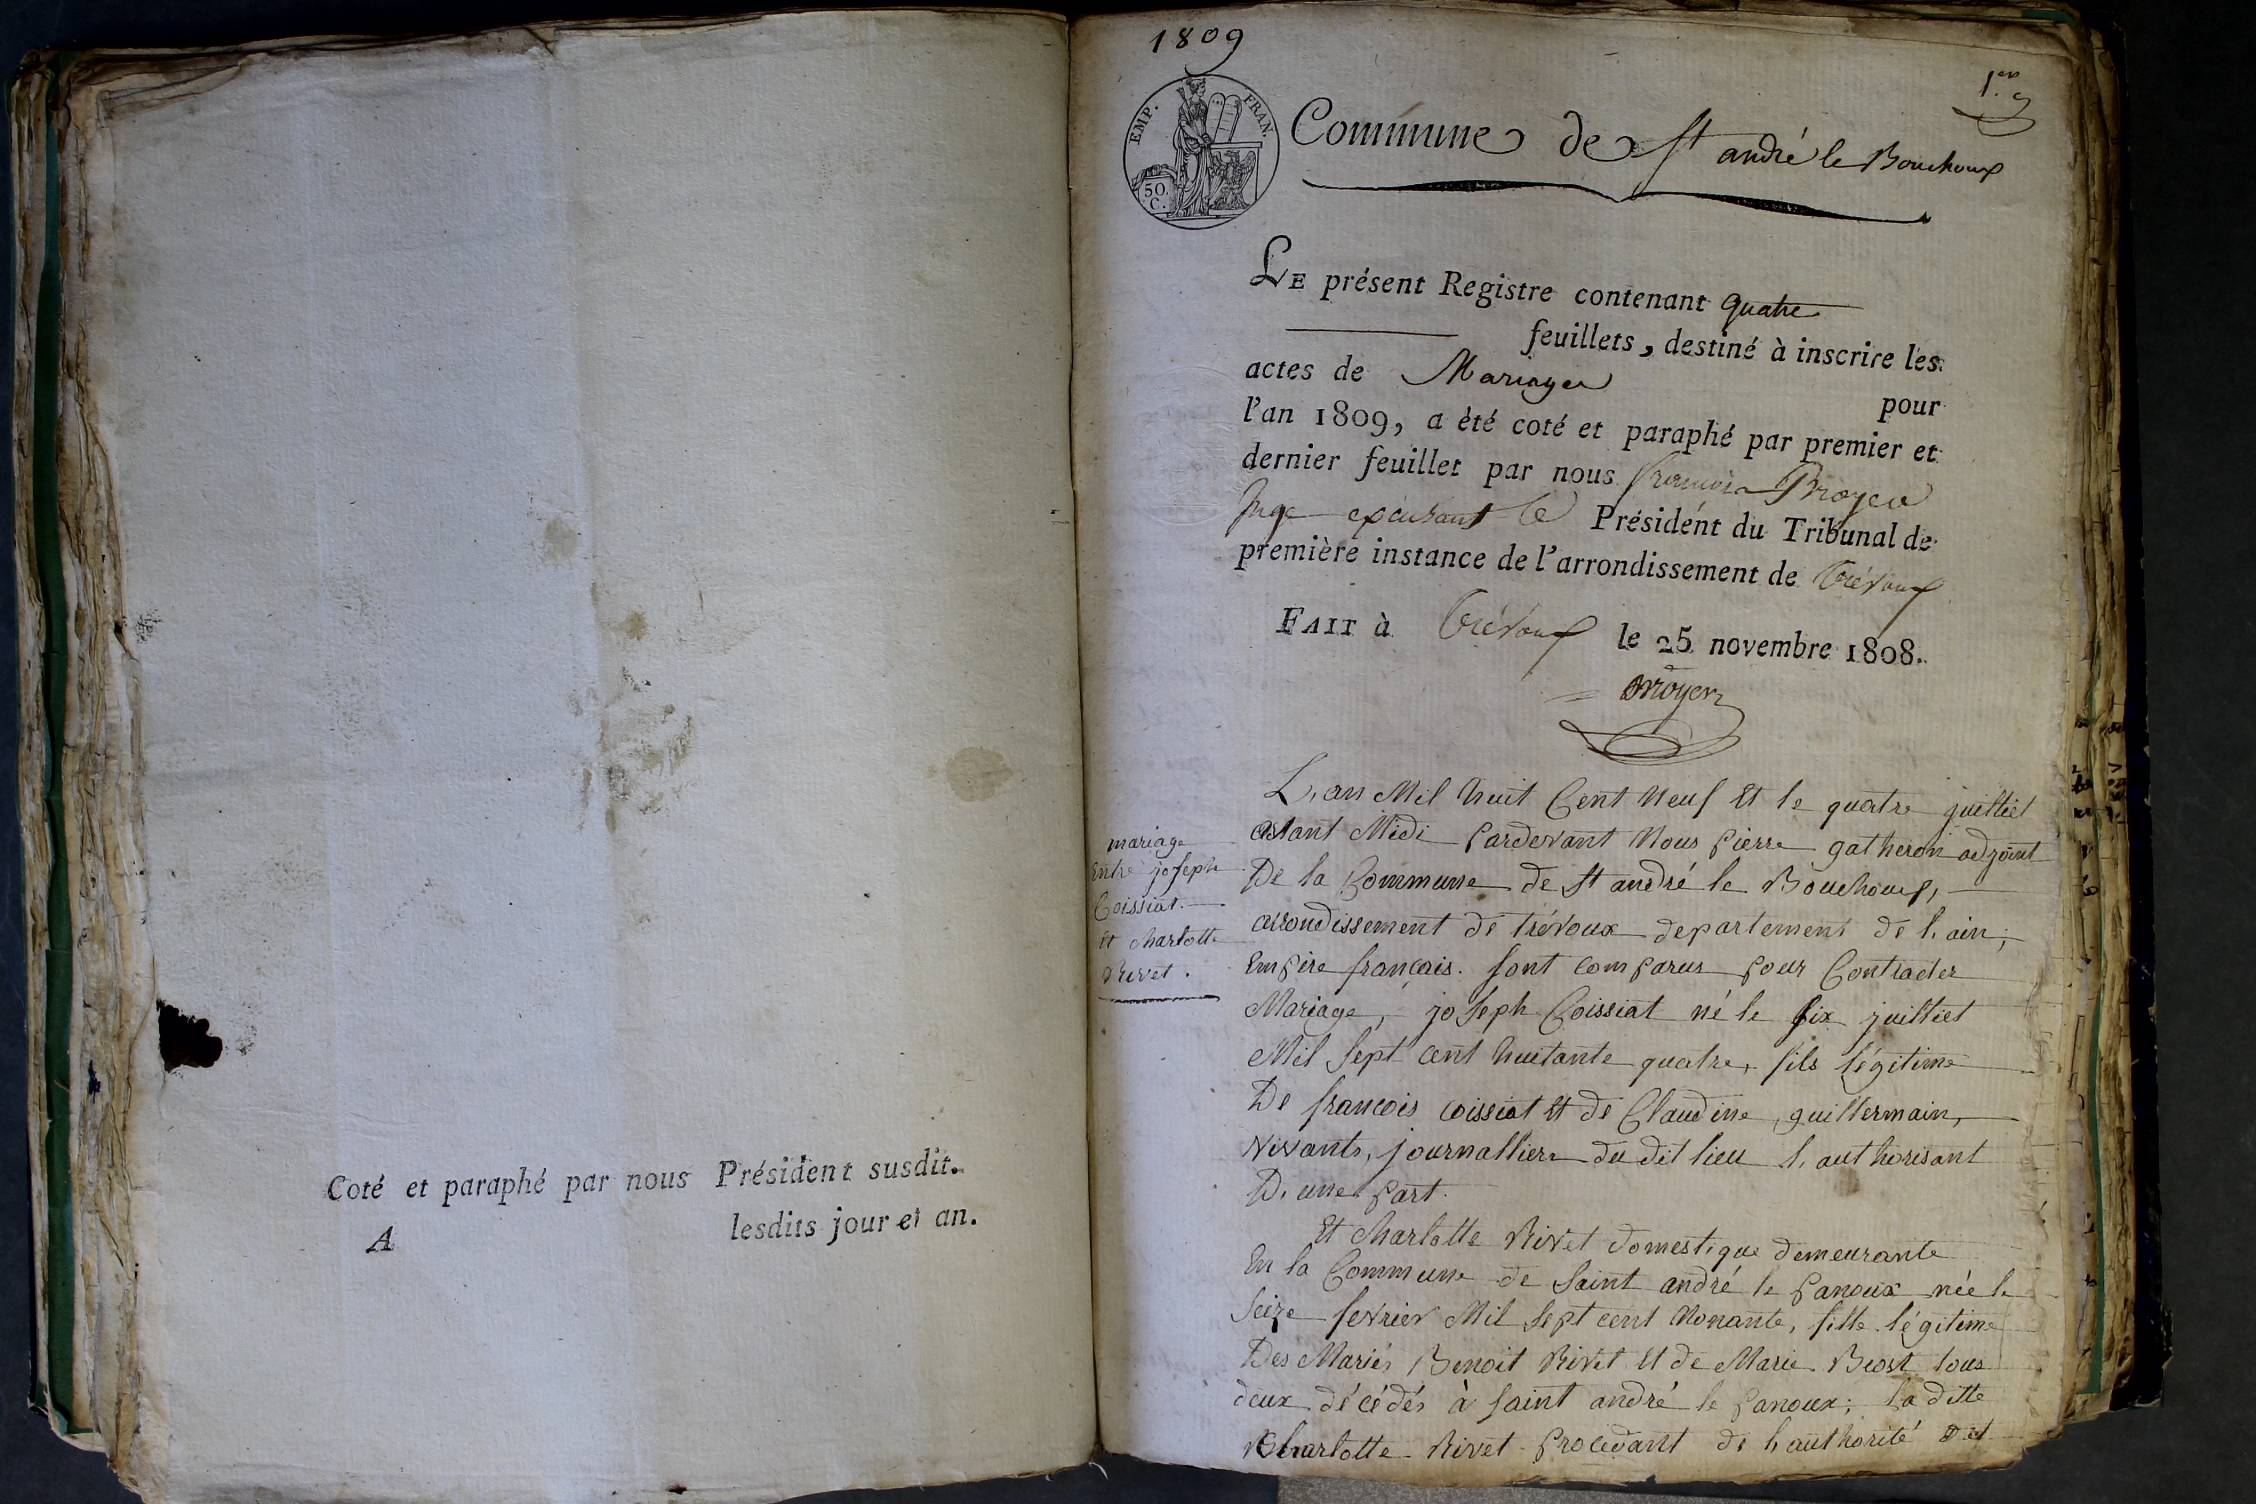 Coté et paraphé par nous Président susdit.
A lesdits jour et an.
1809
1.er
EMP. FRAN.
50.
C.
Commune de St andré le Bouchoux
LE présent Registre contenant quatre
feuillets, destiné à inscrire les
actes de Mariages pour
l'an 1809, a été coté et paraphé par premier et
dernier feuillet par nous
Juge Président du Tribunal de
première instance de l'arrondissement de Trévoux
FAIT à Trévoux le 25 novembre 1808.
mariage
Entre joseph
Coissiat
et charlotte
Rivet.
L'an Mil huit Cent Neuf Et le quatre juilliet
avant Midi pardevant Nous pierre gatheron adjoint
De la Commune de St andré le Bouchoux,
arrondissement de trévoux departement de l'ain,
Empire français. sont comparus pour Contracter
Mariage, joseph Coissiat né le six juilliet
Mil sept cent huitante quatre, fils légitime
De francois coissiat Et de Claudine guillermain,
vivants, journalliers du dit lieu l'authorisant
D'une part.
Et charlotte Rivet domestique demeurante
En la Commune de saint andré le panoux née le
seize fevrier Mil sept cent Nonante, fille légitime
Des Mariés Benoit Rivet Et de Marie Beost tous
deux décédés à saint andré le panoux; la ditte
Charlotte Rivet procedant de l'authorité